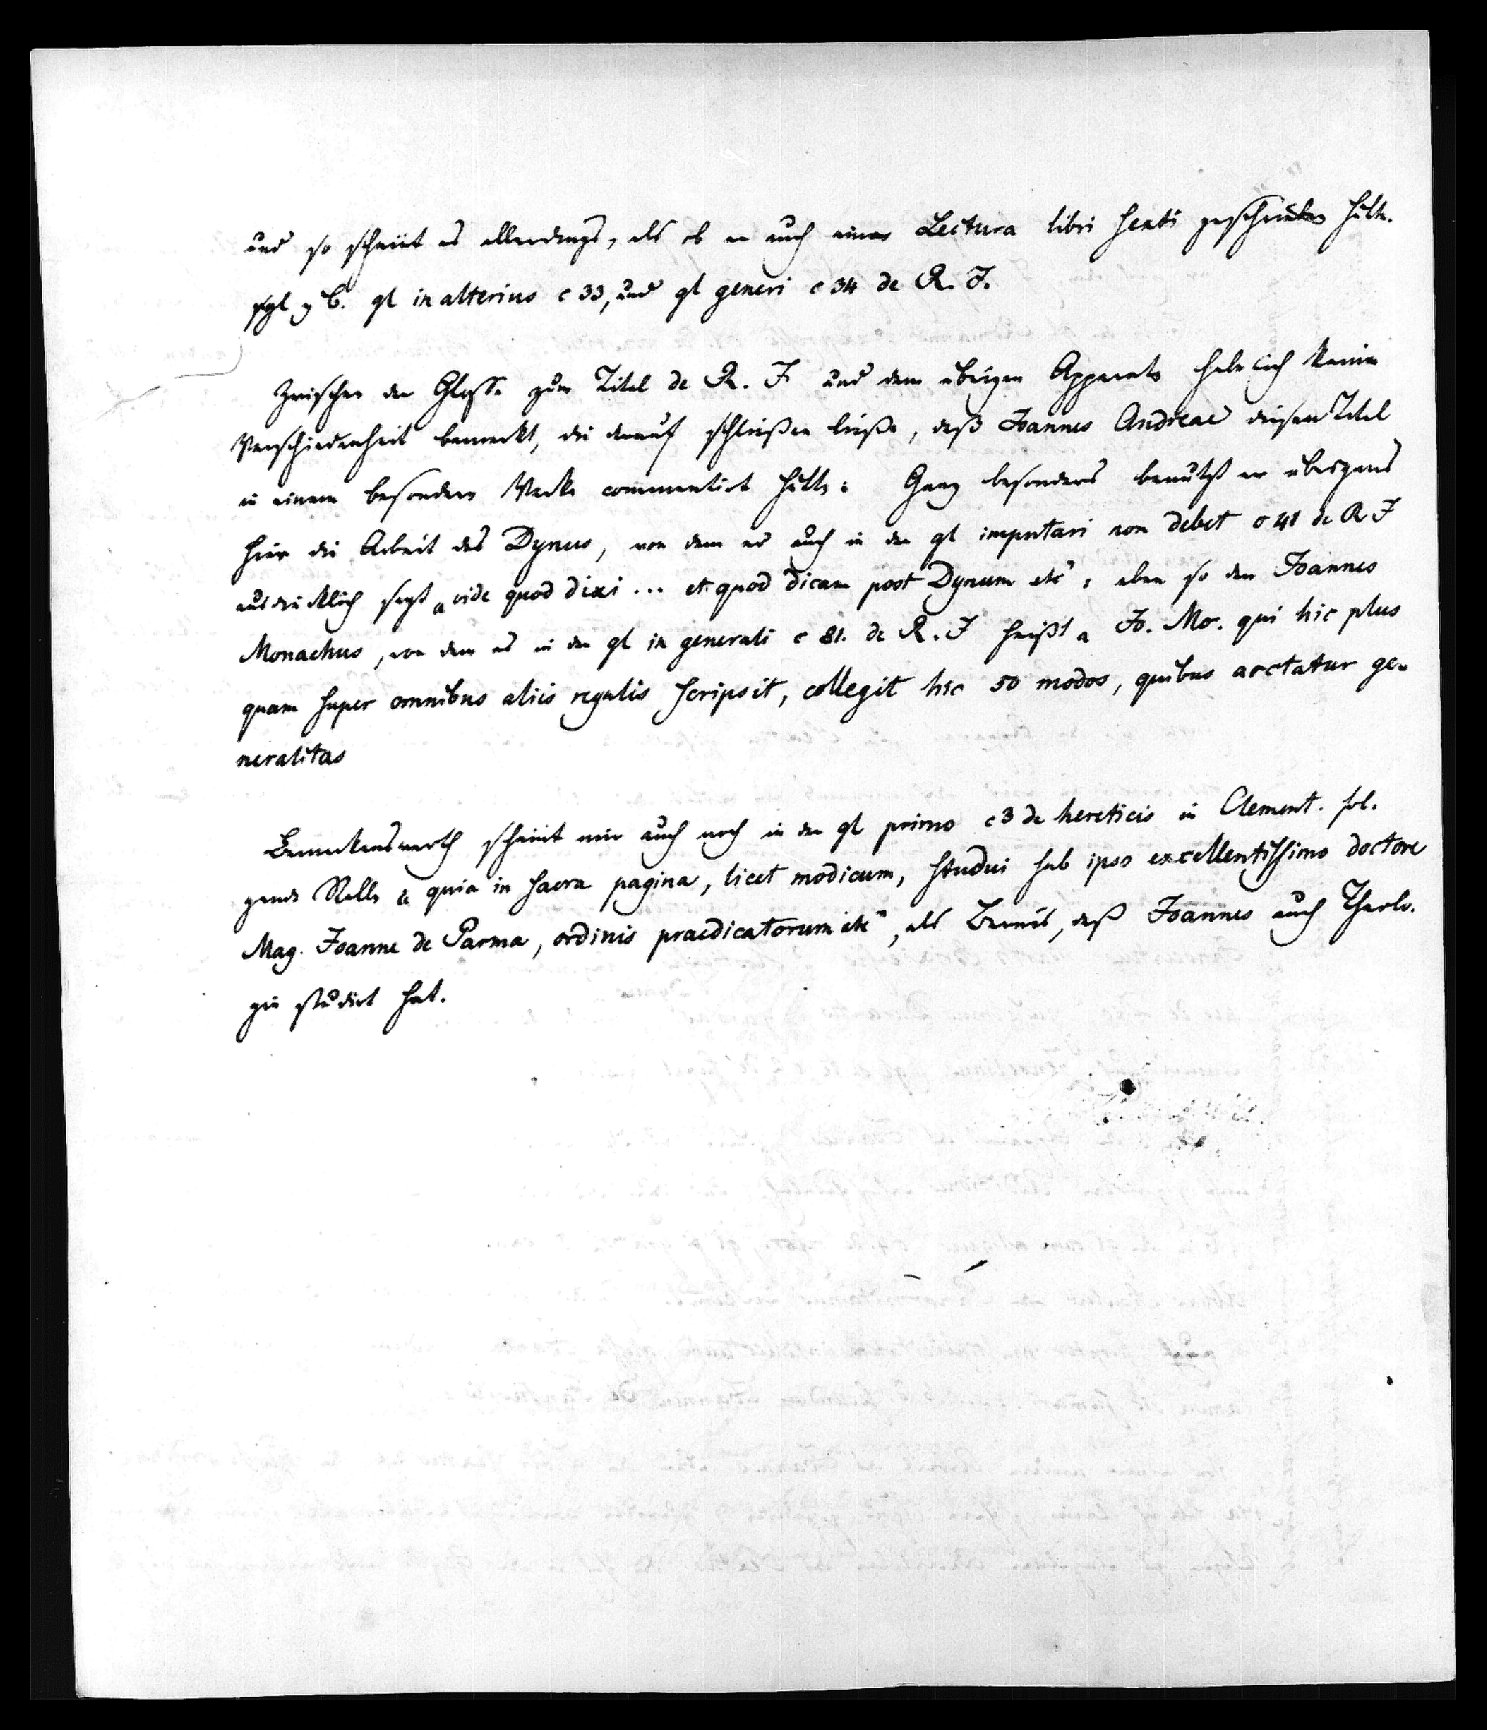 und so scheint es allerdings, als ob er auch eine Lectura libri sexti geschrieben hätte.
vgl z B. gl in alterius c 33, und gl generi c 34 de R. J.
Zwischen der Glosse zum Titel de R. J. und dem übrigen Apparate habe ich keine
Verschiedenheit bemerkt, die darauf schließen ließe, daß Joannes Andreae diesen Titel
in einem besondern Werke commentirt hätte. Ganz besonders benützt er übrigens
hier die Arbeit des Dynus, von dem er auch in der gl imputari non debet c 41 de R J
ausdrücklich sagt „vide quod dixi ... et quod dicam post Dynum etc“, eben so den Joannes
Monachus, von dem es in der gl in generali c 81. de R. J heißt „ Jo. Mo. qui hic plus
quam super omnibus aliis regulis scripsit, collegit hic 50 modos, quibus arctatur ge-
neralitas
Bemerkenswerth scheint mir auch noch in der gl primo c 3 de hereticis in Clement. fol-
gende Stelle „ quia in sacra pagina, licet modicum, studui sub ipso excellentissimo doctore
Mag. Joanne de Parma, ordinis praedicatorum etc“, als Beweis, daß Joannes auch Theolo-
gie studirt hat.